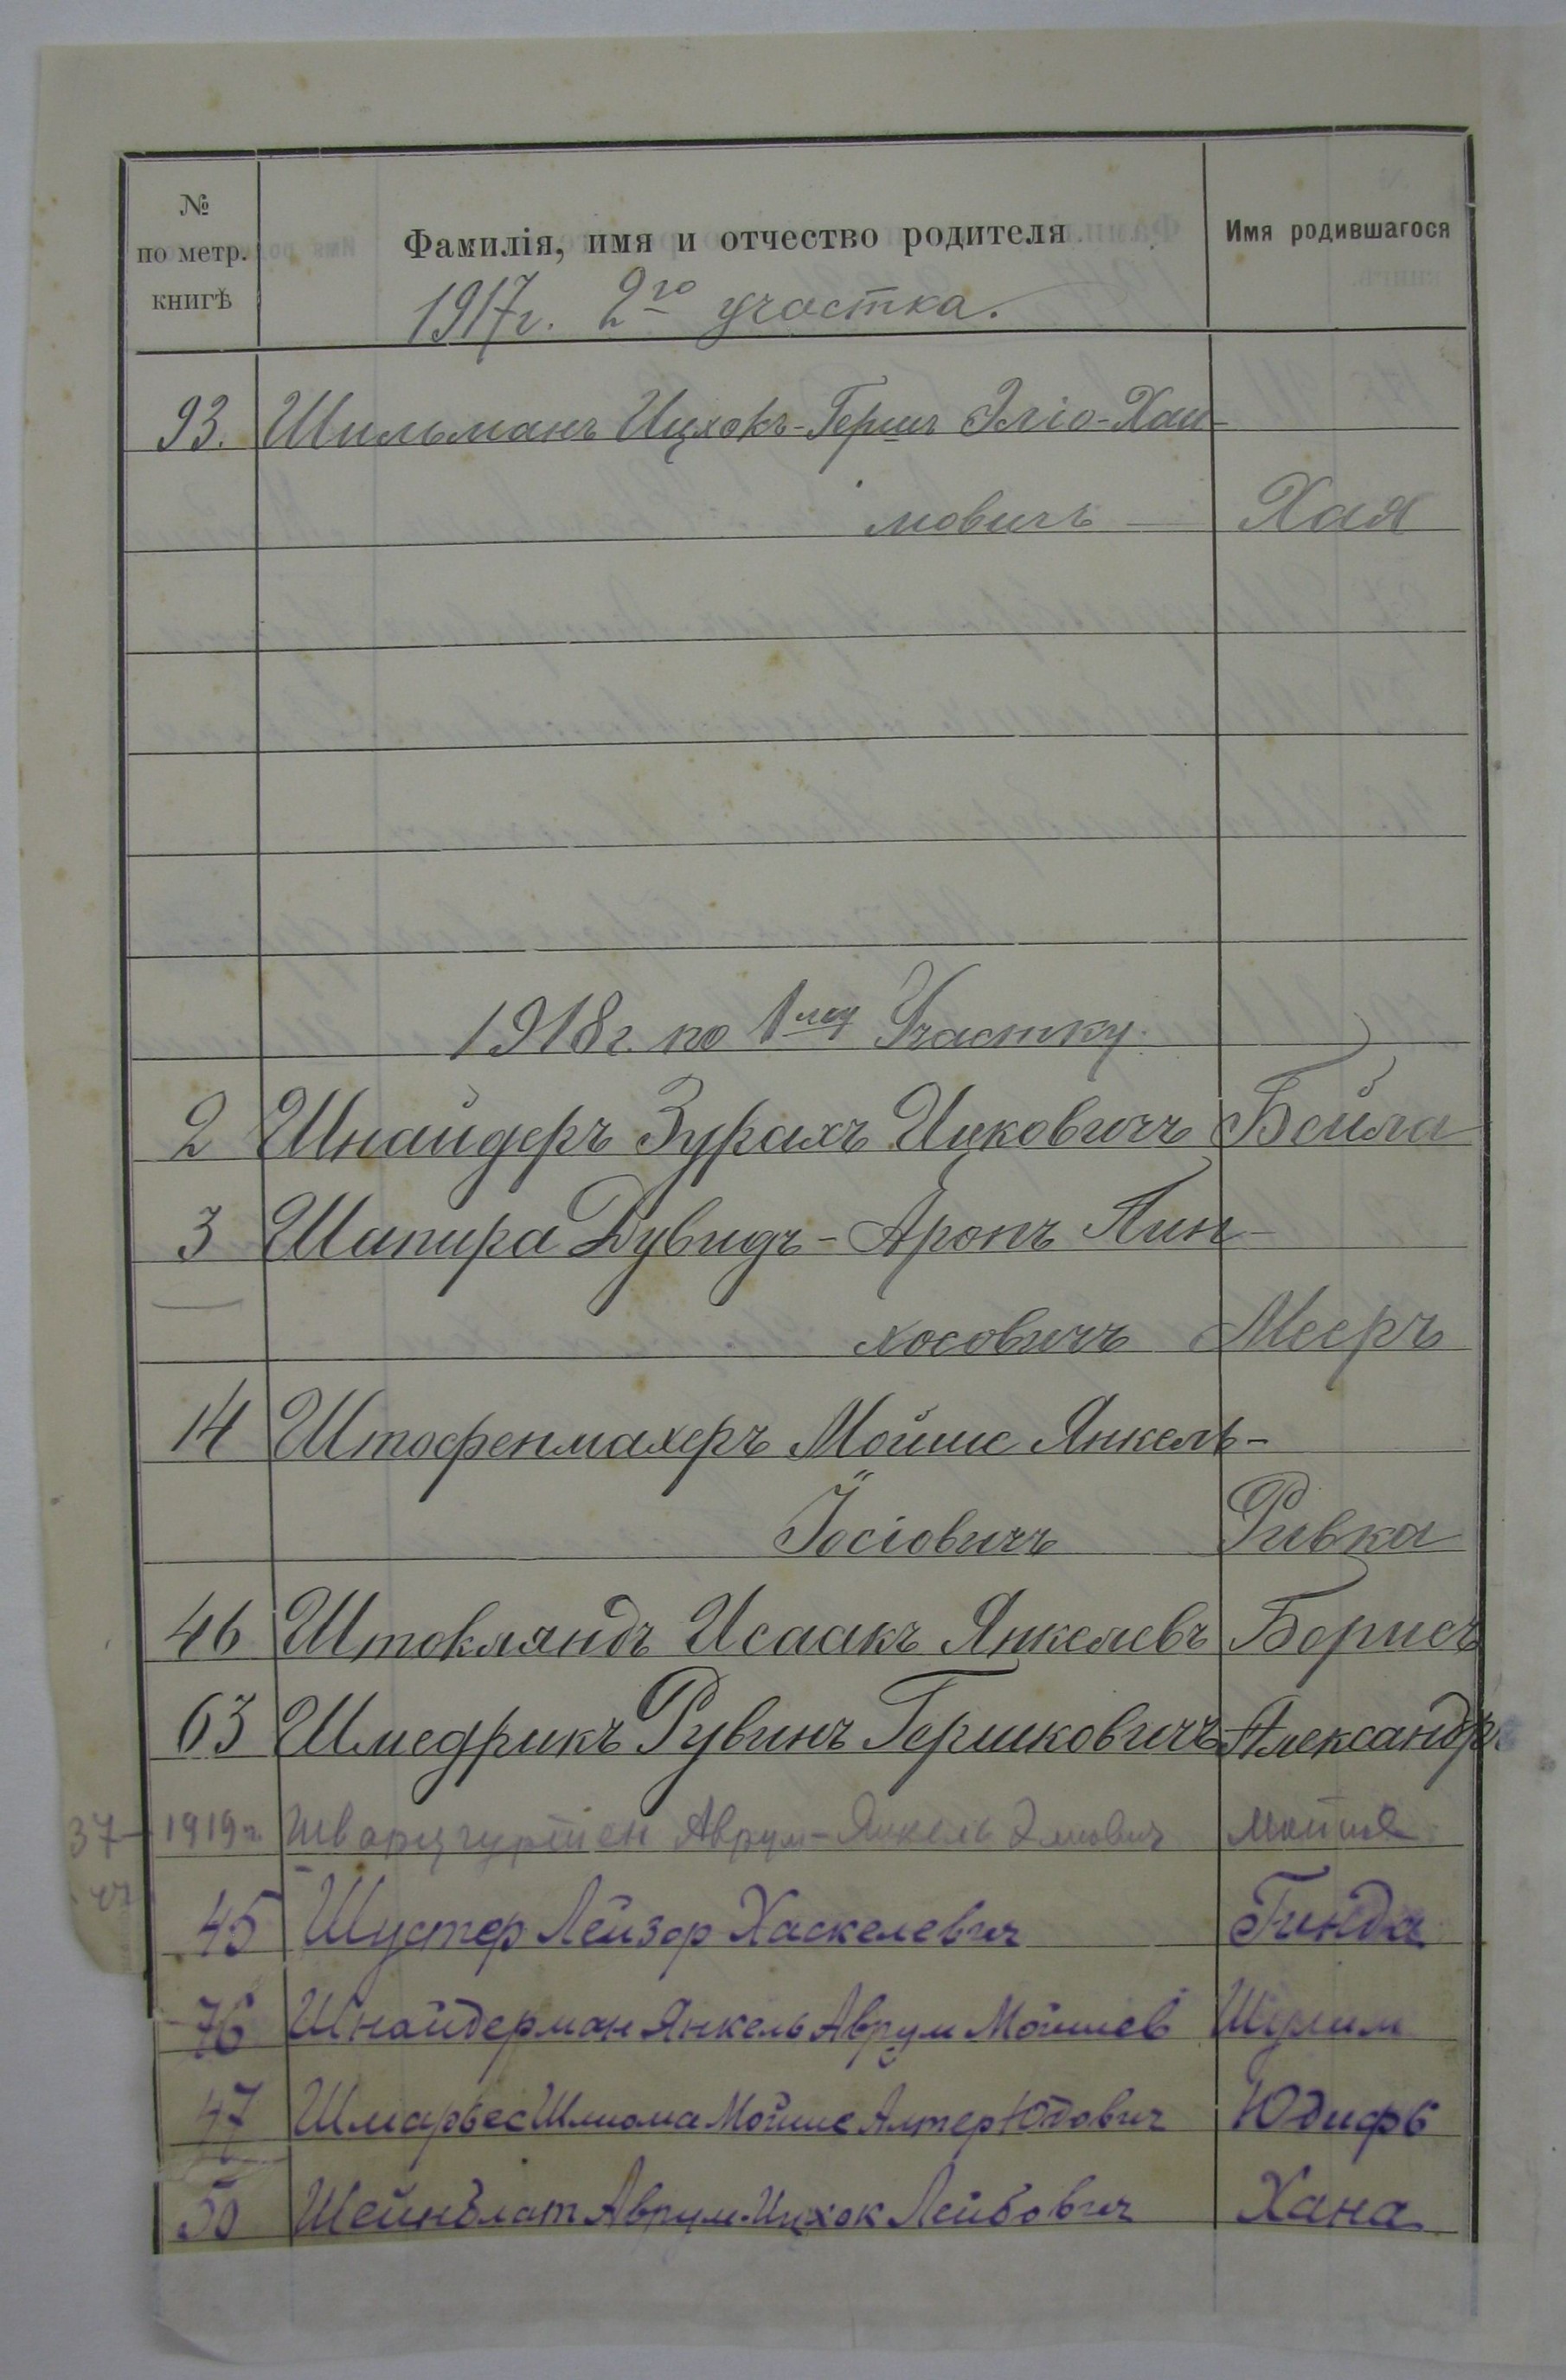 № по метр. книгѣ Фамилія, имя и отчество родителя Имя родившагося
1917 г. 2го участка.
93. Шильманъ Ицхокъ-Гершъ Эліо-Хаи-
мовичъ Хая
1918 г. по 1му Участку.
2 Шнайдеръ Зурахъ Ицковичъ Бейла
3 Шапира Дувидъ-Аронъ Пин-
хосовичъ Мееръ
14 Штофенмахеръ Мойше Янкель-
Іосіовичъ Ривка
46 Штокляндъ Исаакъ Янкелевъ Борисъ
63 Шмедрикъ Рувинъ Гершковичъ Александръ
37 1919 г. Шварцгуртен Аврум-Янкель Элиович Мойше
45 Шустер Лейзор Хаскелевич Гинда
76 Шнайдерман Янкель Аврум Мойшев Шулим
47 Шмарьес Шлиома Мойше Алтер Юдович Юдифь
50 Шейнблат Аврум-Ицхок Лейбович Хана